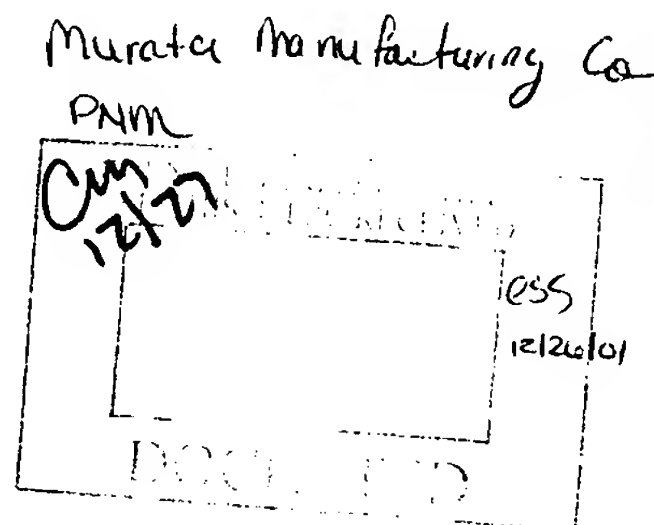 Murata Manufacturing Co
PNM
Cm
12/27
ess
12/26/01
DOCKETED